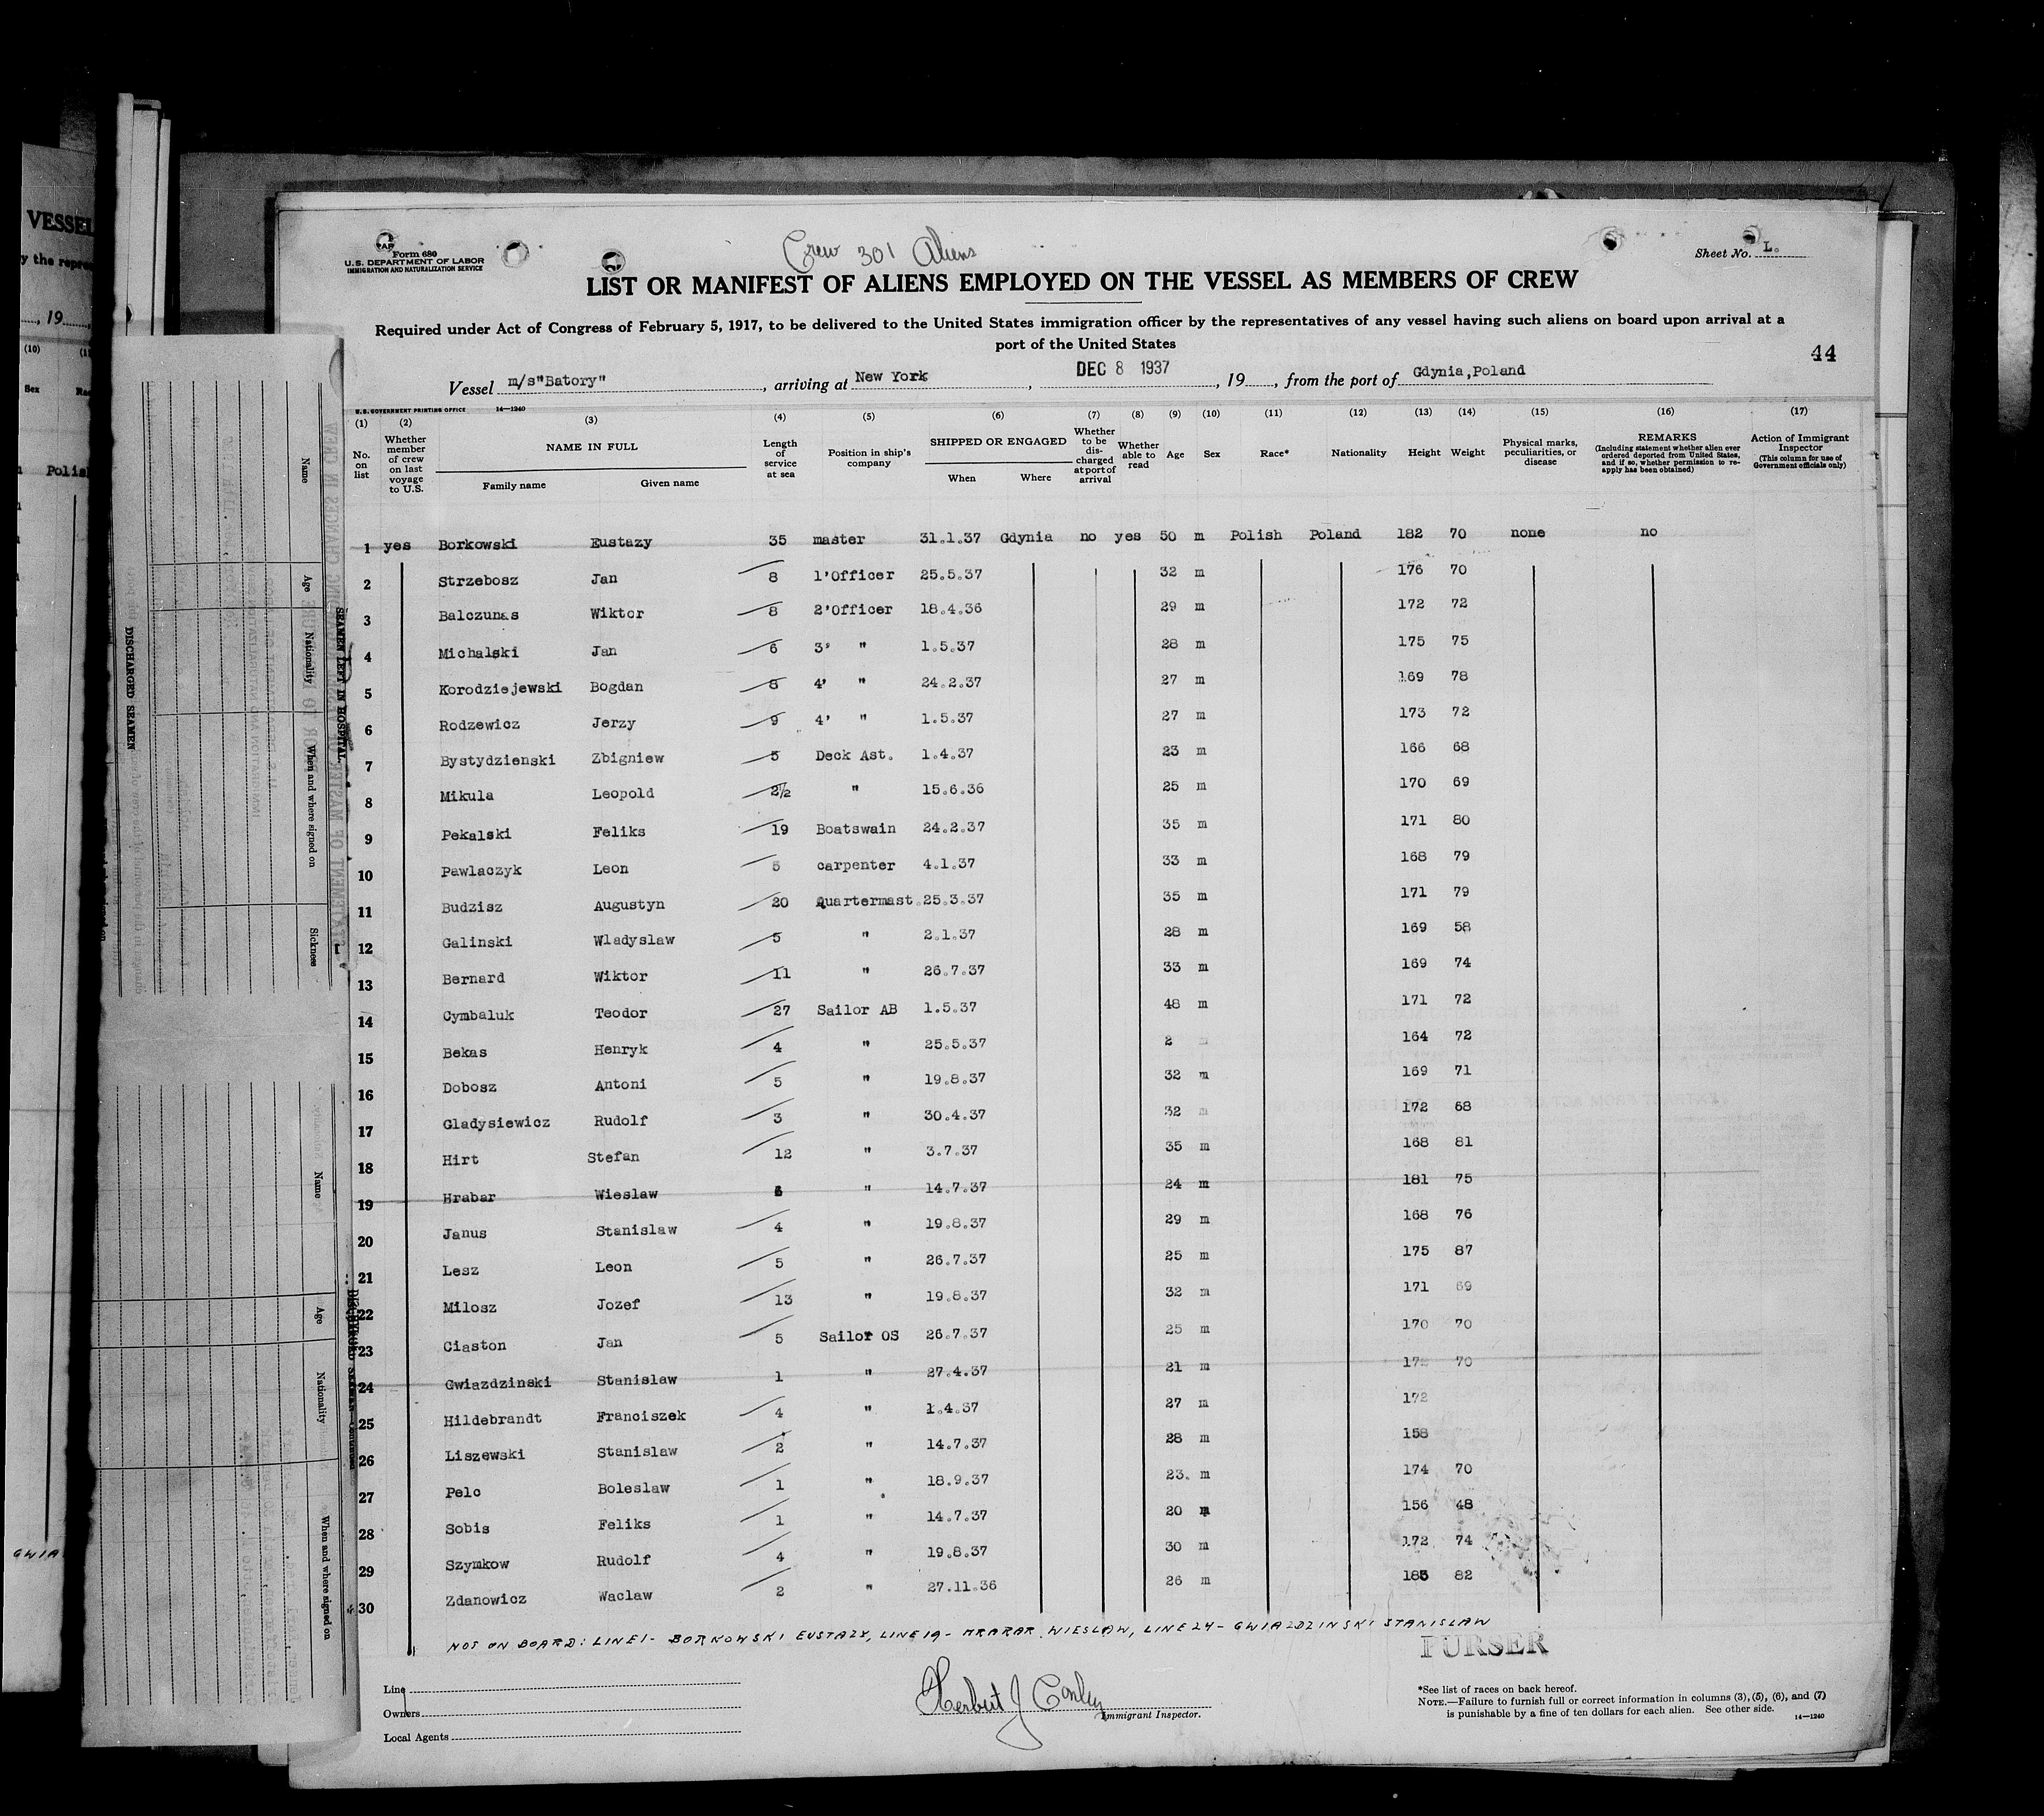 Form 680
U. S. DEPARTMENT OF LABOR
IMMIGRATION AND NATURALIZATION SERVICE
Crew 301 Aliens
Sheet No. L.
LIST OR MANIFEST OF ALIENS EMPLOYED ON THE VESSEL AS MEMBERS OF CREW
Required under Act of Congress of February 5, 1917, to be delivered to the United States immigration officer by the representatives of any vessel having such aliens on board upon arrival at a
port of the United States
44
Vessel m/s"Batory", arriving at New York, DEC 8 1937, 19, from the port of Gdynia,Poland
U. S. GOVERNMENT PRINTING OFFICE 14—1240
(1) (2) (3) (4) (5) (6) (7) (8) (9) (10) (11) (12) (13) (14) (15) (16) (17)
No. on list Whether member of crew on last voyage to U.S. NAME IN FULL Family name Given name Length of service at sea Position in ship's company SHIPPED OR ENGAGED When Where Whether to be discharged at port of arrival Whether able to read Age Sex Race* Nationality Height Weight Physical marks, peculiarities, or disease REMARKS (Including statement whether alien ever ordered deported from United States, and if so, whether permission to reapply has been obtained) Action of Immigrant Inspector (This column for use of Government officials only)
1 yes Borkowski Eustazy 35 master 31.1.37 Gdynia no yes 50 m Polish Poland 182 70 none no
2 Strzebosz Jan 8 1'Officer 25.5.37 32 m 176 70
3 Balczunas Wiktor 8 2'Officer 18.4.36 29 m 172 72
4 Michalski Jan 6 3' " 1.5.37 28 m 175 75
5 Korodziejewski Bogdan 8 4' " 24.2.37 27 m 169 78
6 Rodzewicz Jerzy 9 4' " 1.5.37 27 m 173 72
7 Bystydzienski Zbigniew 5 Deck Ast. 1.4.37 23 m 166 68
8 Mikula Leopold 2½ " 15.6.36 25 m 170 69
9 Pekalski Feliks 19 Boatswain 24.2.37 35 m 171 80
10 Pawlaczyk Leon 5 carpenter 4.1.37 33 m 168 79
11 Budzisz Augustyn 20 Quartermast. 25.3.37 35 m 171 79
12 Galinski Wladyslaw 5 " 2.1.37 28 m 169 58
13 Bernard Wiktor 11 " 26.7.37 33 m 169 74
14 Cymbaluk Teodor 27 Sailor AB 1.5.37 48 m 171 72
15 Bekas Henryk 4 " 25.5.37 2 164 72
16 Dobosz Antoni 5 " 19.8.37 32 m 169 71
17 Gladysiewicz Rudolf 3 " 30.4.37 32 m 172 68
18 Hirt Stefan 12 " 3.7.37 35 m 168 81
19 Hrabar Wieslaw " 14.7.37 24 m 181 75
20 Janus Stanislaw 4 " 19.8.37 29 m 168 76
21 Lesz Leon 5 " 26.7.37 25 m 175 87
22 Milosz Jozef 13 " 19.8.37 32 m 171 69
23 Ciaston Jan 5 Sailor OS 26.7.37 25 m 170 70
24 Gwiazdzinski Stanislaw 1 " 27.4.37 21 m 70
25 Hildebrandt Franciszek 4 " 1.4.37 27 m 172
26 Liszewski Stanislaw 2 " 14.7.37 28 m 158
27 Pelc Boleslaw 1 " 18.9.37 23. m 174 70
28 Sobis Feliks 1 " 14.7.37 20 m 156 48
29 Szymkow Rudolf 4 " 19.8.37 30 m 172 74
30 Zdanowicz Waclaw 2 " 27.11.36 26 m 185 82
NOT ON BOARD: LINE 1- BORKOWSKI EUSTAZY, LINE 19- HRABAR WIESLAW, LINE 24- GWIAZDZINSKI STANISLAW
PURSER
Line
Owners
Local Agents
Herbert J Conley
Immigrant Inspector.
*See list of races on back hereof.
NOTE.—Failure to furnish full or correct information in columns (3), (5), (6), and (7)
is punishable by a fine of ten dollars for each alien. See other side.
14—1240
VESSEL
y the repre
, 19
(10)
Sex
Polis
GWIA
Name
Age
Nationality
When and where signed on
Sickness
SEAMEN LEFT IN HOSPITAL
DISCHARGED SEAMEN
Name
Age
Nationality
When and where signed on